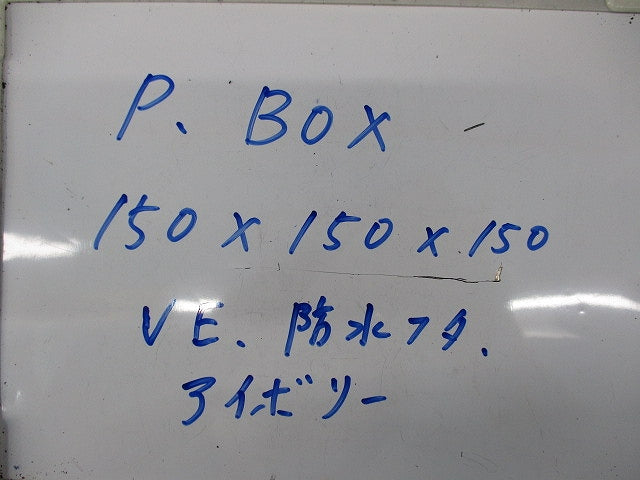 P. BOX
150 x 150 x 150
VE. 防水フタ.
アイボリー